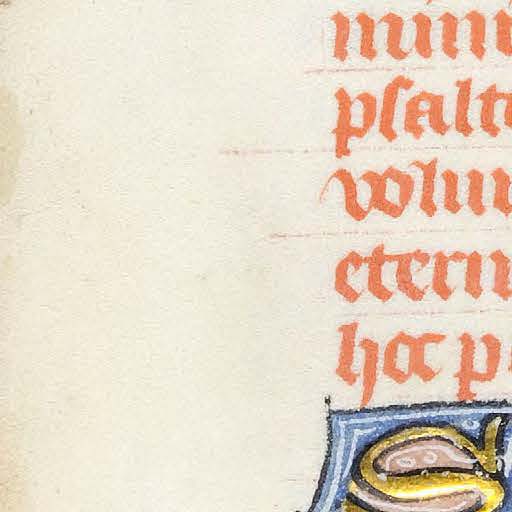 minu
psalt
volun
etern
hoc p
S